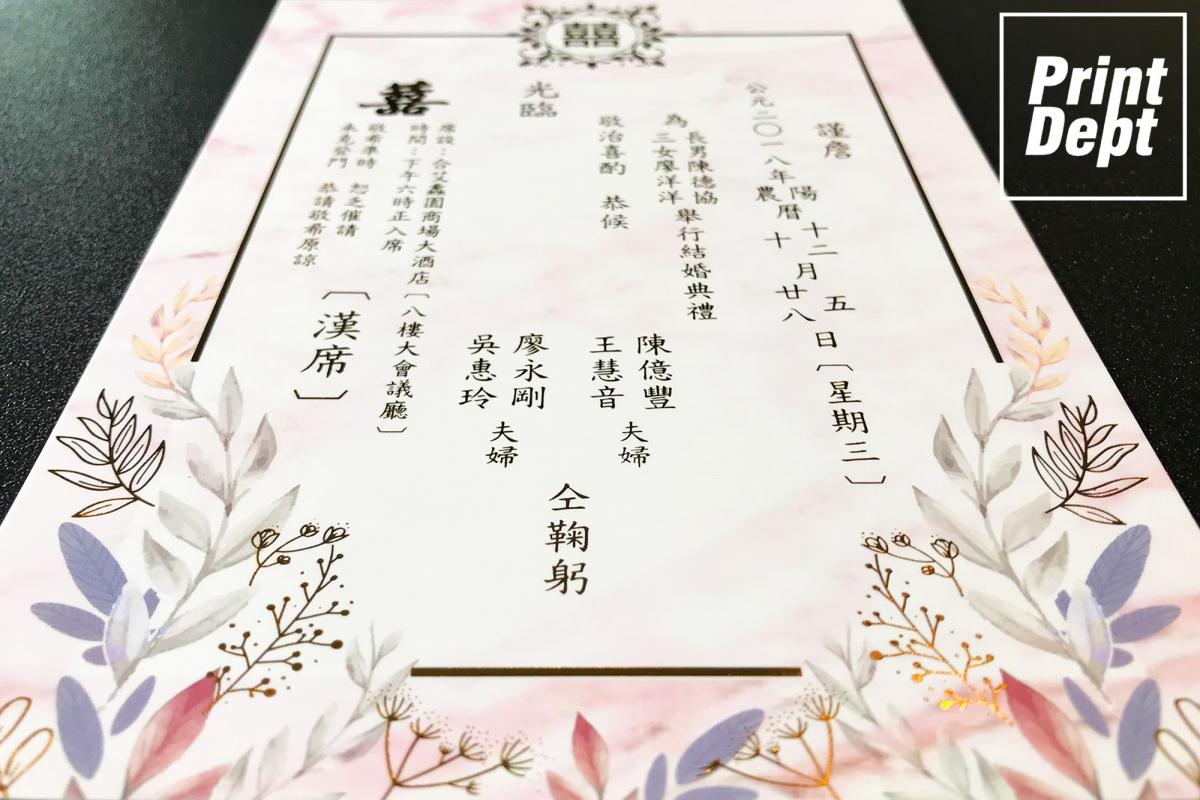 Print
Dept
囍
謹詹
公元二〇一八年
陽曆十二月五日〔星期三〕
農曆十月廿八日
為
長男陳德協
三女廖洋洋
舉行結婚典禮
敬治喜酌 恭候
光臨
陳億豐
王慧音
夫婦
廖永剛
吳惠玲
夫婦
仝鞠躬
囍
席設：合艾鑫園商場大酒店〔八樓大會議廳〕
時間：下午六時正入席
敬希準時 恕乏催請
未克登門 恭請敬希原諒
〔漢席〕